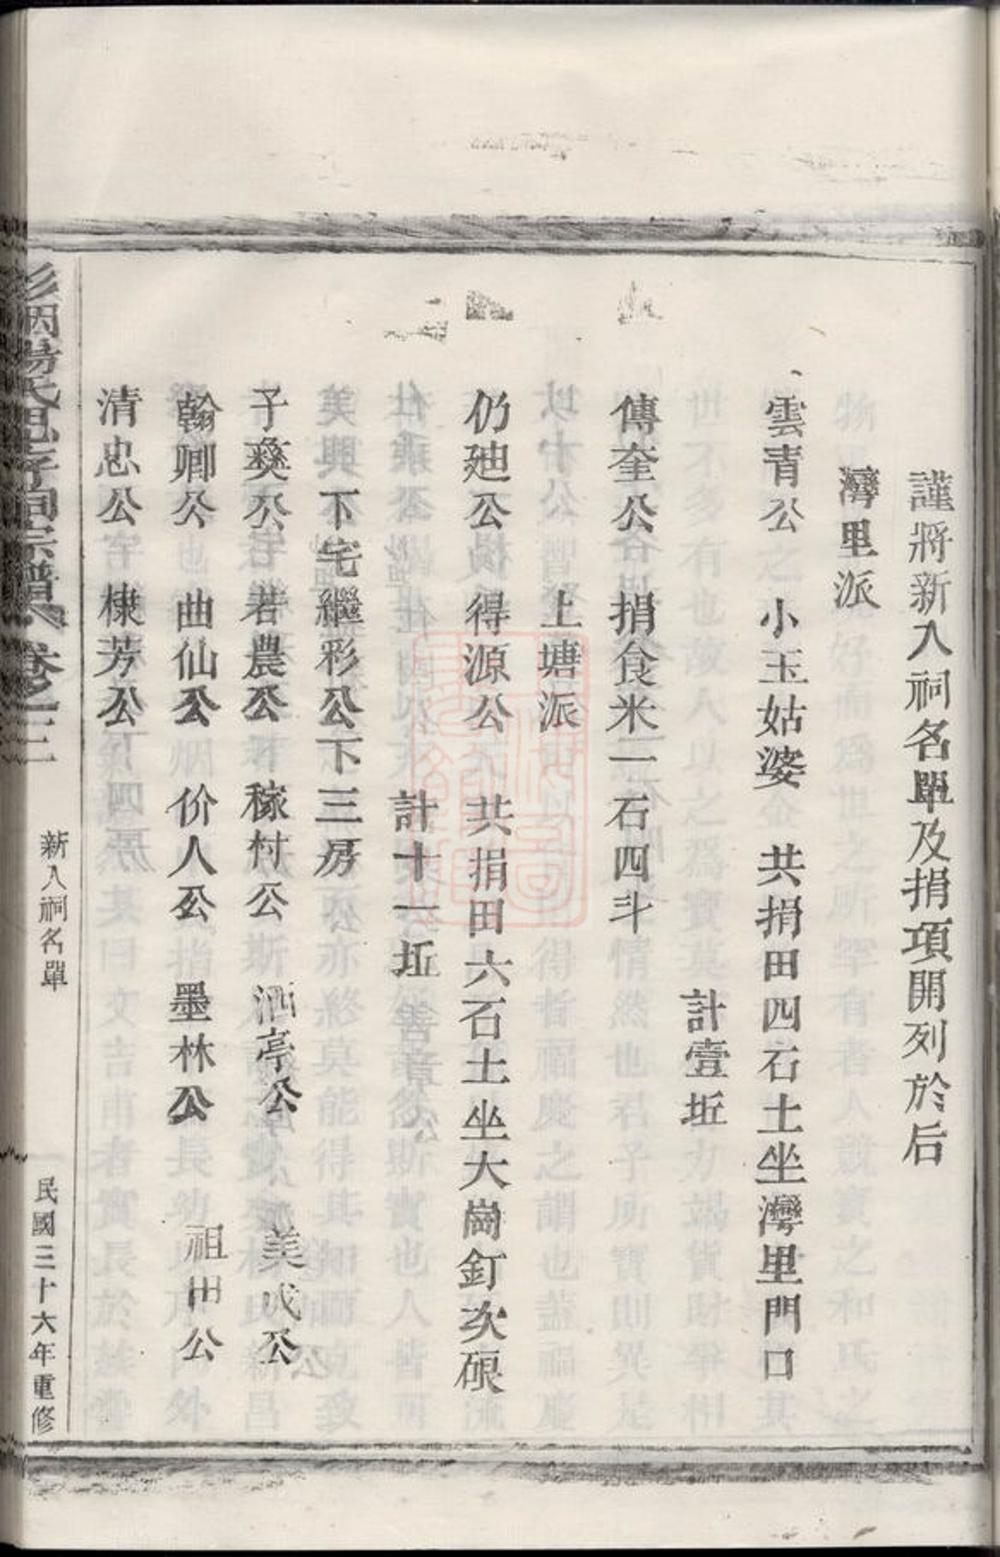 謹將新入祠名單及捐項開列於后
灣里派
雲青公 小玉姑婆 共捐田四石土坐灣里門口
計壹坵
傳奎公 捐食米一石四斗
上塘派
仍迪公 得源公 共捐田六石土坐大崗釘次硠
計十一坵
下宅繼彩公下三房
子彝公 若農公 稼村公 洒亭公 美成公
翰卿公 曲仙公 价人公 墨林公 祖田公
清忠公 棣芳公
楊氏思孝祠宗譜 卷之三
新入祠名單
民國三十六年重修